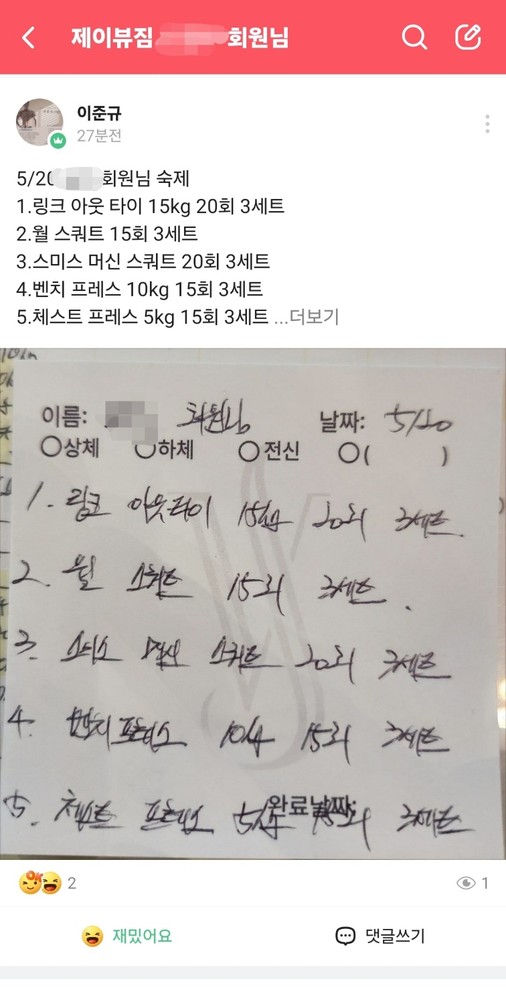 제이뷰짐 회원님
이준규
27분전
5/20 회원님 숙제
1.링크 아웃 타이 15kg 20회 3세트
2.월 스쿼트 15회 3세트
3.스미스 머신 스쿼트 20회 3세트
4.벤치 프레스 10kg 15회 3세트
5.체스트 프레스 5kg 15회 3세트 ...더보기
이름: 회원님 날짜: 5/20
○상체 ○하체 ○전신 ○( )
1. 링크 아웃타이 15kg 20회 3세트.
2. 월 스쿼트 15회 3세트.
3. 스미스 머신 스쿼트 20회 3세트
4. 벤치프레스 10kg 15회 3세트
5. 체스트 프레스 5kg 15회 3세트
완료날짜:
2
1
재밌어요
댓글쓰기